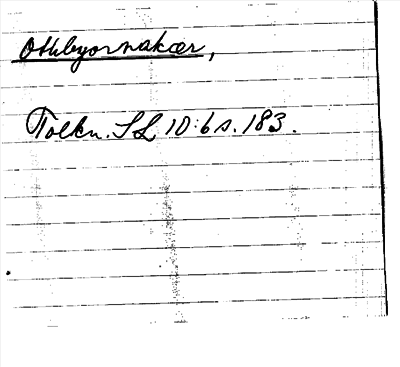 Othbyornakær,
Tolkn. SL 10:6 s. 183.